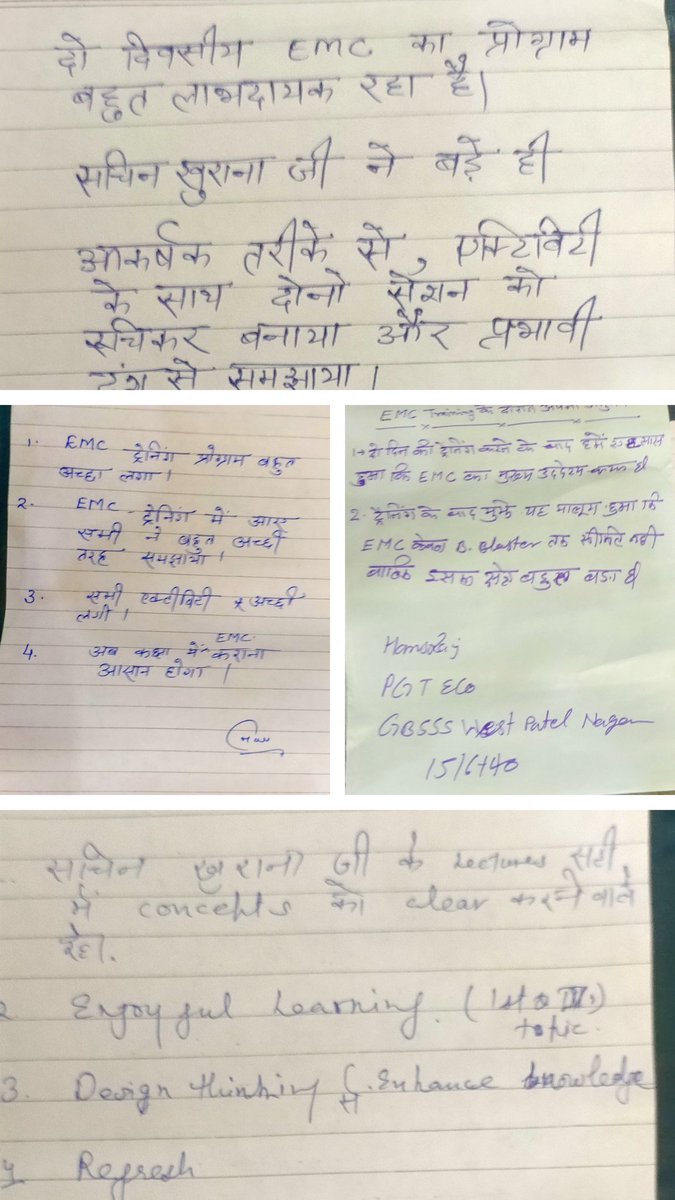 दो दिवसीय EMC का प्रोग्राम
बहुत लाभदायक रहा है।
सचिन खुराना जी ने बड़े ही
आकर्षक तरीके से, एक्टिविटी
के साथ दोनो सेशन को
रुचिकर बनाया और प्रभावी
ढंग से समझाया।
1. EMC ट्रेनिंग प्रोग्राम बहुत
अच्छा लगा।
2. EMC ट्रेनिंग में आए
सभी ने बहुत अच्छी
तरह समझाया।
3. सभी एक्टीविटी अच्छी
लगी।
4. अब कक्षा में EMC कराना
आसान होगा।
EMC Training के दौरान अपना
1→ दो दिन की ट्रेनिंग करने के बाद हमें
हुआ कि EMC का मुख्य उद्देश्य क्या है
2. ट्रेनिंग के बाद मुझे यह मालूम हुआ कि
EMC केवल B. Blaster तक सीमित नही
बल्कि इसका क्षेत्र बहुत बड़ा है
Hansraj
PGT Eco
GBSSS West Patel Nagar
सचिन खुराना जी के Lectures सही
में concepts को clear करने वाले
रहे।
2 Enjoyful Learning. (1st & III) topic.
3. Design thinking से Enhance knowledge
4 Refresh